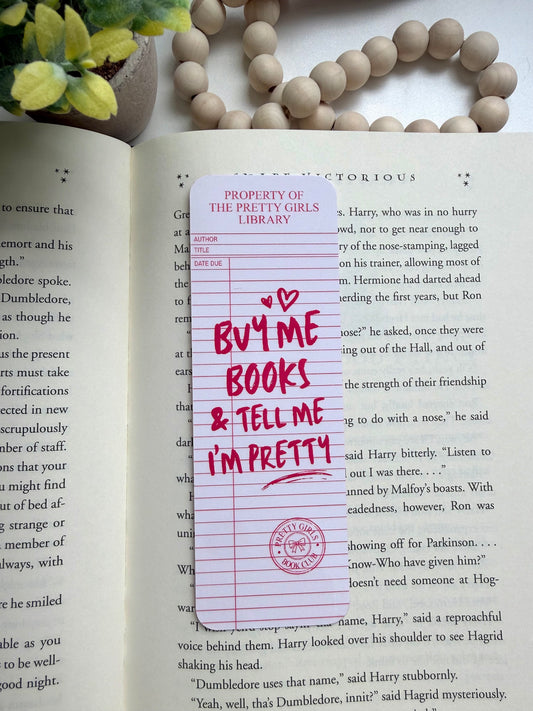 to ensure that
emort and his
gth."
bledore spoke.
Dumbledore,
as though he
ion.
us the present
rts must take
fortifications
ected in new
scrupulously
mber of staff.
ons that your
u might find
ut of bed af-
ng strange or
a member of
always, with
re he smiled
able as you
s to be well-
good night.
VICTORIOUS
PROPERTY OF
THE PRETTY GIRLS
LIBRARY
AUTHOR
TITLE
DATE DUE
BUY ME
BOOKS
& TELL ME
I'M PRETTY
PRETTY GIRLS
BOOK CLUB
es. Harry, who was in no hurry
owd, nor to get near enough to
ry of the nose-stamping, lagged
on his trainer, allowing most of
Hermione had darted ahead
herding the first years, but Ron
nose?" he asked, once they were
ing out of the Hall, and out of
the strength of their friendship
ng to do with a nose," he said
said Harry bitterly. "Listen to
out I was there. . . ."
unned by Malfoy's boasts. With
eadedness, however, Ron was
showing off for Parkinson. . . .
Know-Who have given him?"
doesn't need someone at Hog-
name, Harry," said a reproachful
voice behind them. Harry looked over his shoulder to see Hagrid
shaking his head.
"Dumbledore uses that name," said Harry stubbornly.
"Yeah, well, tha's Dumbledore, innit?" said Hagrid mysteriously.